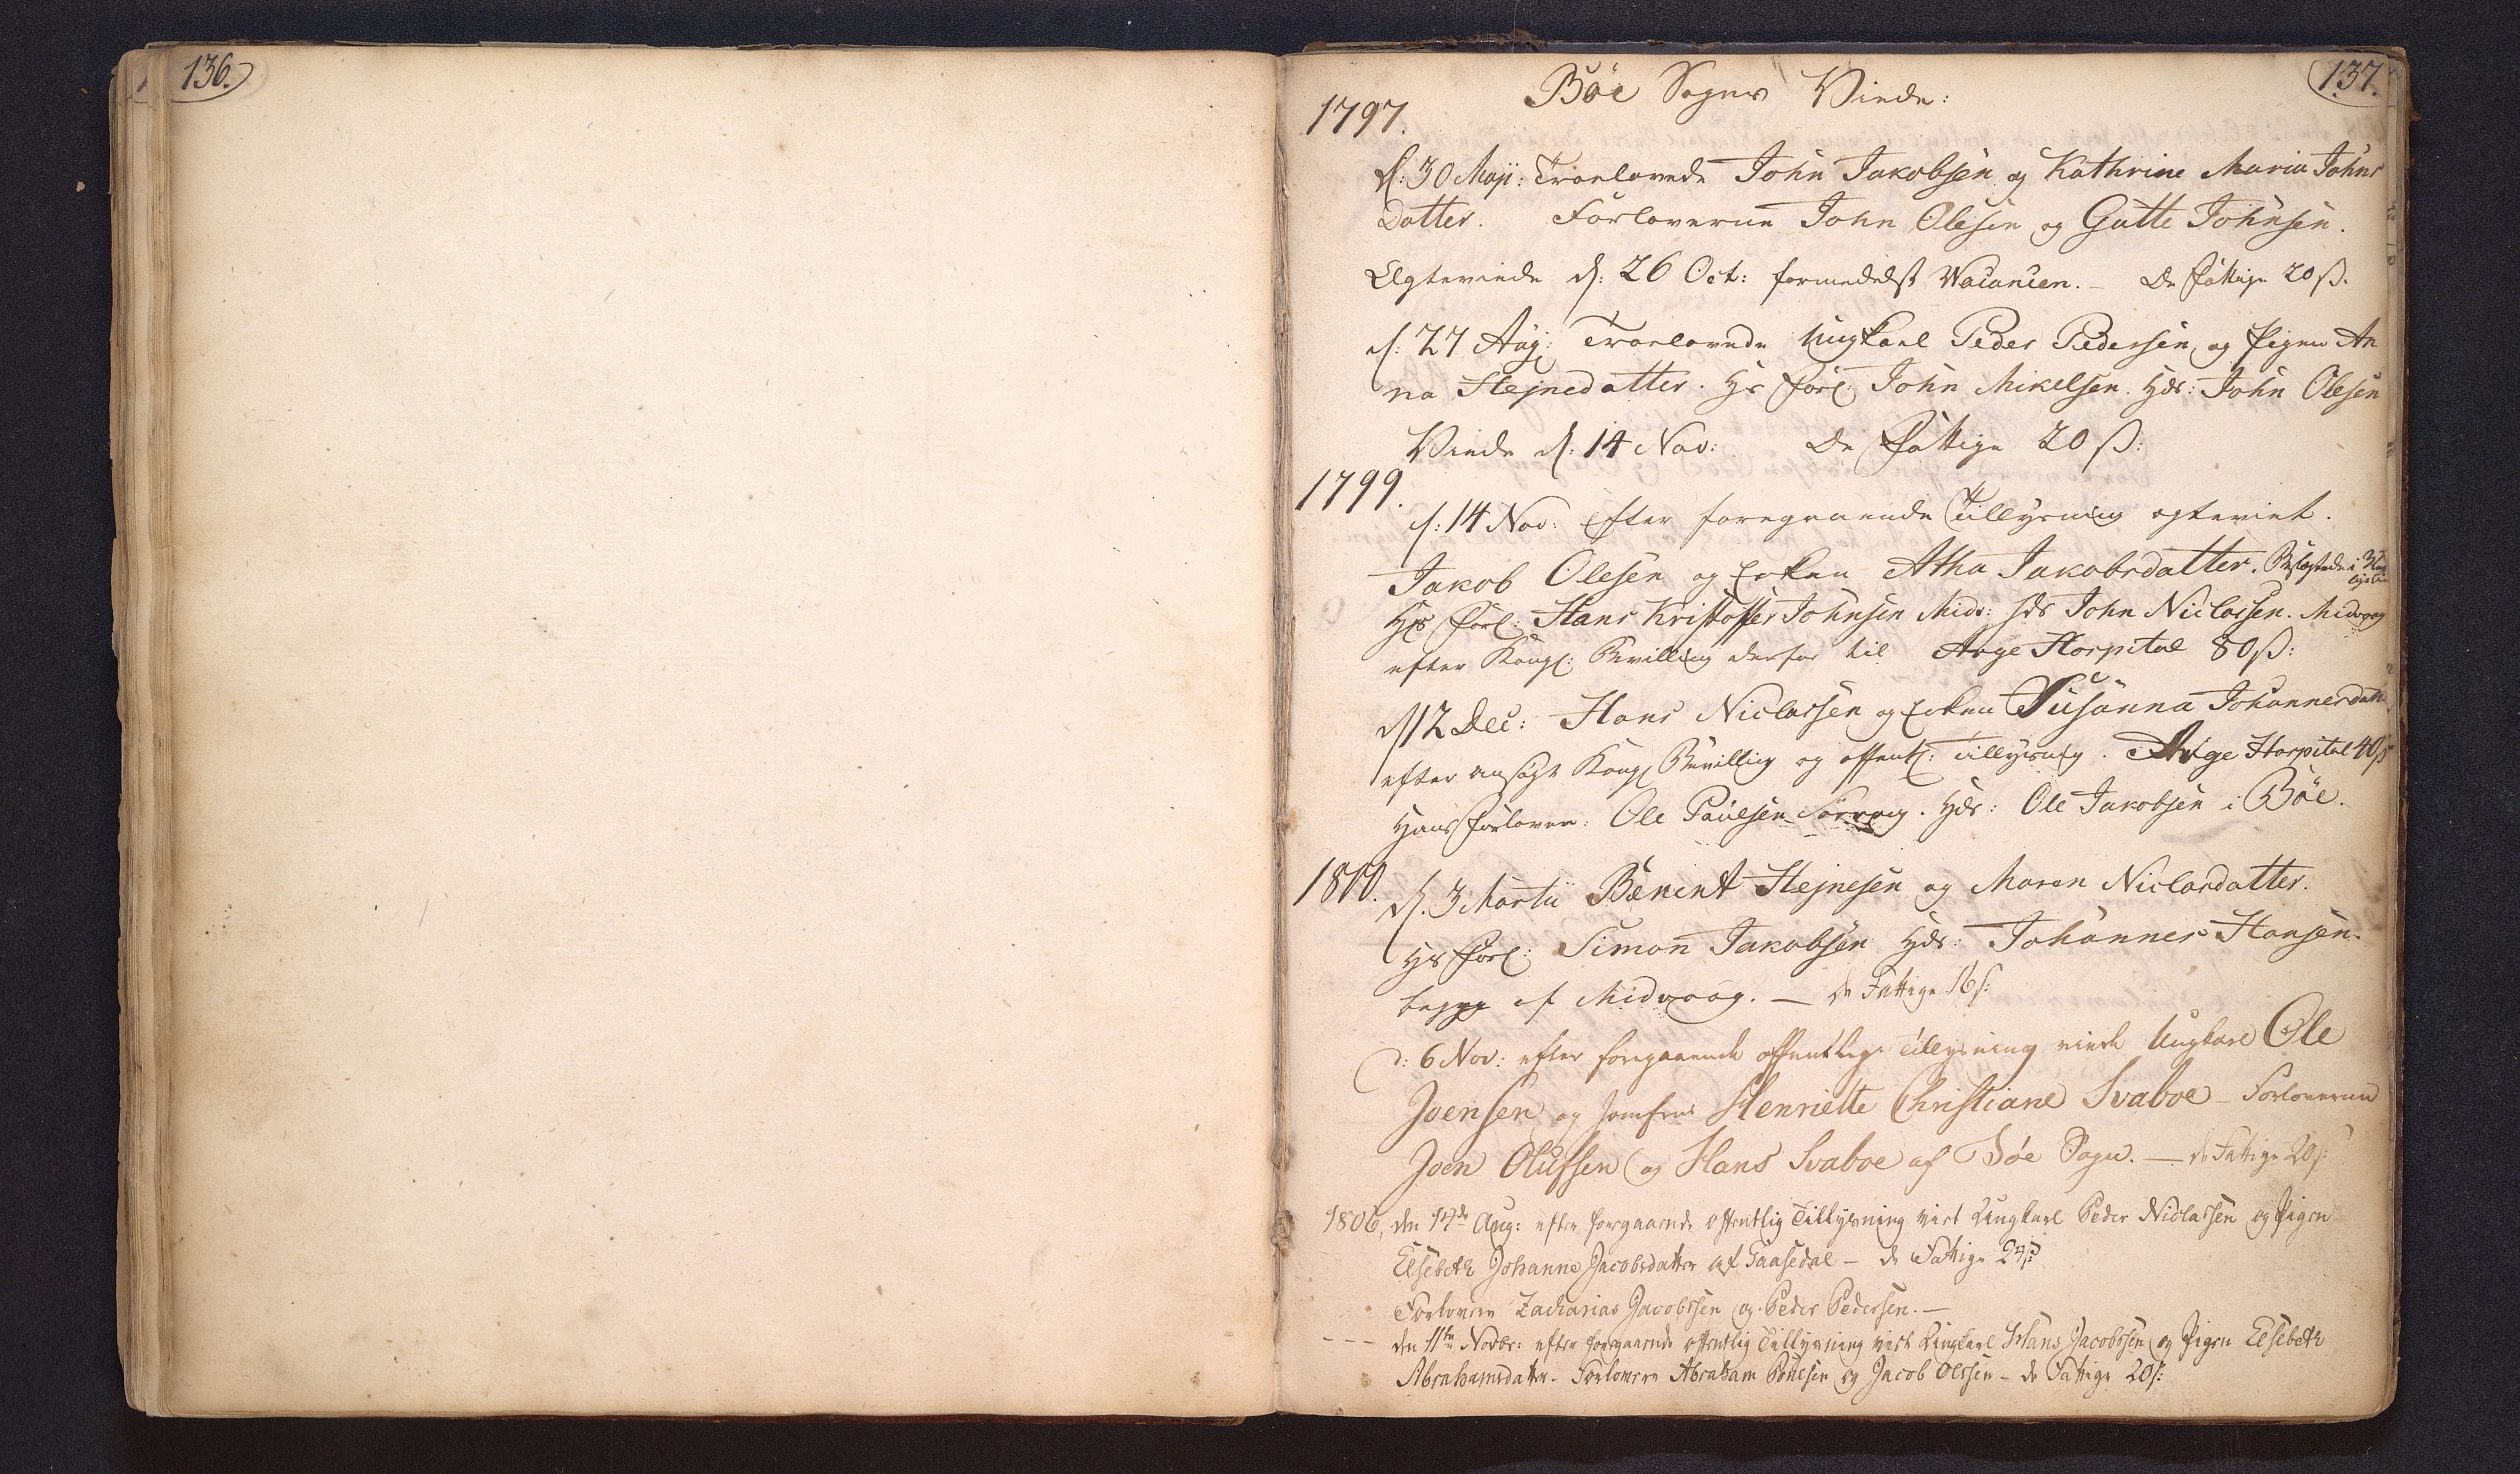 136.
137.
Bøe Sogns Viede:
1797.
d: 30 Maji: Troelovede John Jakobsen og Kathrine Maria Johns
Datter. Forloverne John Olesen og Gutte Johnsen.
Ægteviede d: 26 Oct: formedelst Vacancen. – De Fattige 20 ß.
d: 27 Aug: Troelovede Ungkarl Peder Pedersen og Pigen An
na Hejnedatter. Hs Forl: John Mikelsen. Hds: John Olesen
Viede d: 14 Nov: De Fattige 20 ß:
1799.
d: 14 Nov: Efter foregaaende Tillysning egteviet.
Jakob Olesen og Enken Atha Jakobsdatter. Beslægtede i 3die
Hs Forl: Hans Kristoffer Johnsen Midv: Hds John Niclassen. Midvaag
efter Kongl: Bevilling derfor til Arge Hospital 80 ß:
d 12 Dec: Hans Niclassen og Enken Susanna Johannesdatt:
efter ansøgt Kongl Bevilling og offentl: Tillysning. Arge Hospital 40 ß
Hans Forlover: Ole Paulsen Sørvaag. Hds: Ole Jakobsen i Bøe.
1800. d. 3 Martii Benent Hejnesen og Maren Niclasdatter.
Hs Forl: Simon Jakobsen Hds: Johannes Hansen.
begge af Midvaag. – De Fattige 16 ß:
d: 6 Nov: efter foregaaende offentlige Tillysning viede Ungkarl Ole
Joensen og Jomfrue Henriette Christiane Svaboe – Forloverne
Joen Olufsen og Hans Svaboe af Bøe Sogn. – de Fattige 20 ß:
1806, den 14de Aug: efter foregaaende offentlig Tillysning viet Ungkarl Peder Niclassen og Pigen
Elsebeth Johanne Jacobsdatter af Gaasedal – de Fattige 24 ß
Forlovere Zacharias Jacobssen og Peder Pedersen. –
– – – den 11te Novbr: efter foregaaende offentlig Tillysning viet Ungkarl Hans Jacobssen og Pigen Elsebeth
Abrahamsdatter – Forlovere Abraham Poulsen og Jacob Olssen – de Fattige 20 ß: